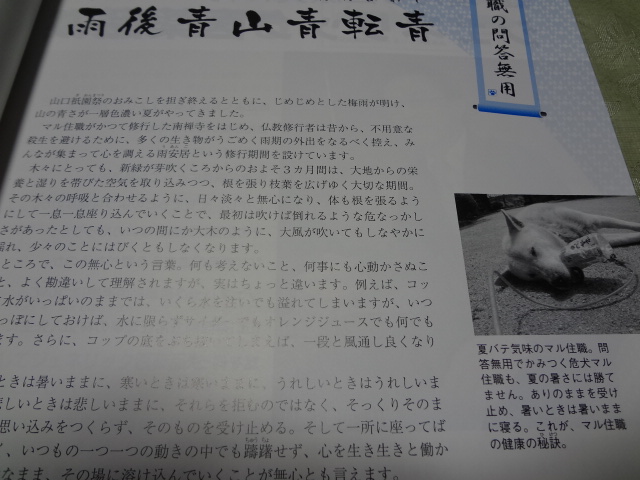 職の問答無用
雨後青山青転青
山口祇園祭のおみこしを担ぎ終えるとともに、じめじめとした梅雨が明け、
山の青さが一層色濃い夏がやってきました。
マル住職がかつて修行した南禅寺をはじめ、仏教修行者は昔から、不用意な
殺生を避けるために、多くの生き物がうごめく雨期の外出をなるべく控え、み
んなが集まって心を調える雨安居という修行期間を設けています。
木々にとっても、新緑が芽吹くころからのおよそ3カ月間は、大地からの栄
養と湿りを帯びた空気を取り込みつつ、根を張り枝葉を広げゆく大切な期間。
その木々の呼吸と合わせるように、日々淡々と無心になり、体も根を張るよう
にして一息一息座り込んでいくことで、最初は吹けば倒れるような危なっかし
さがあったとしても、いつの間にか大木のように、大風が吹いてもしなやかに
揺れ、少々のことにはびくともしなくなります。
ところで、この無心という言葉。何も考えないこと、何事にも心動かさぬこ
と、よく勘違いして理解されますが、実はちょっと違います。例えば、コッ
水がいっぱいのままでは、いくら水を注いでも溢れてしまいますが、いつ
っぽにしておけば、水に限らずサイダーでもオレンジジュースでも何でも
ます。さらに、コップの底をぶち抜いてしまえば、一段と風通し良くなり
ときは暑いままに、寒いときは寒いままに、うれしいときはうれしいま
悲しいときは悲しいままに、それらを拒むのではなく、そっくりそのま
思い込みをつくらず、そのものを受け止める。そして一所に座ってば
く、いつもの一つ一つの動きの中でも躊躇せず、心を生き生きと働か
なまま、その場に溶け込んでいくことが無心とも言えます。
夏バテ気味のマル住職。問
答無用でかみつく危犬マル
住職も、夏の暑さには勝て
ません。ありのままを受け
止め、暑いときは暑いまま
に寝る。これが、マル住職
の健康の秘訣。